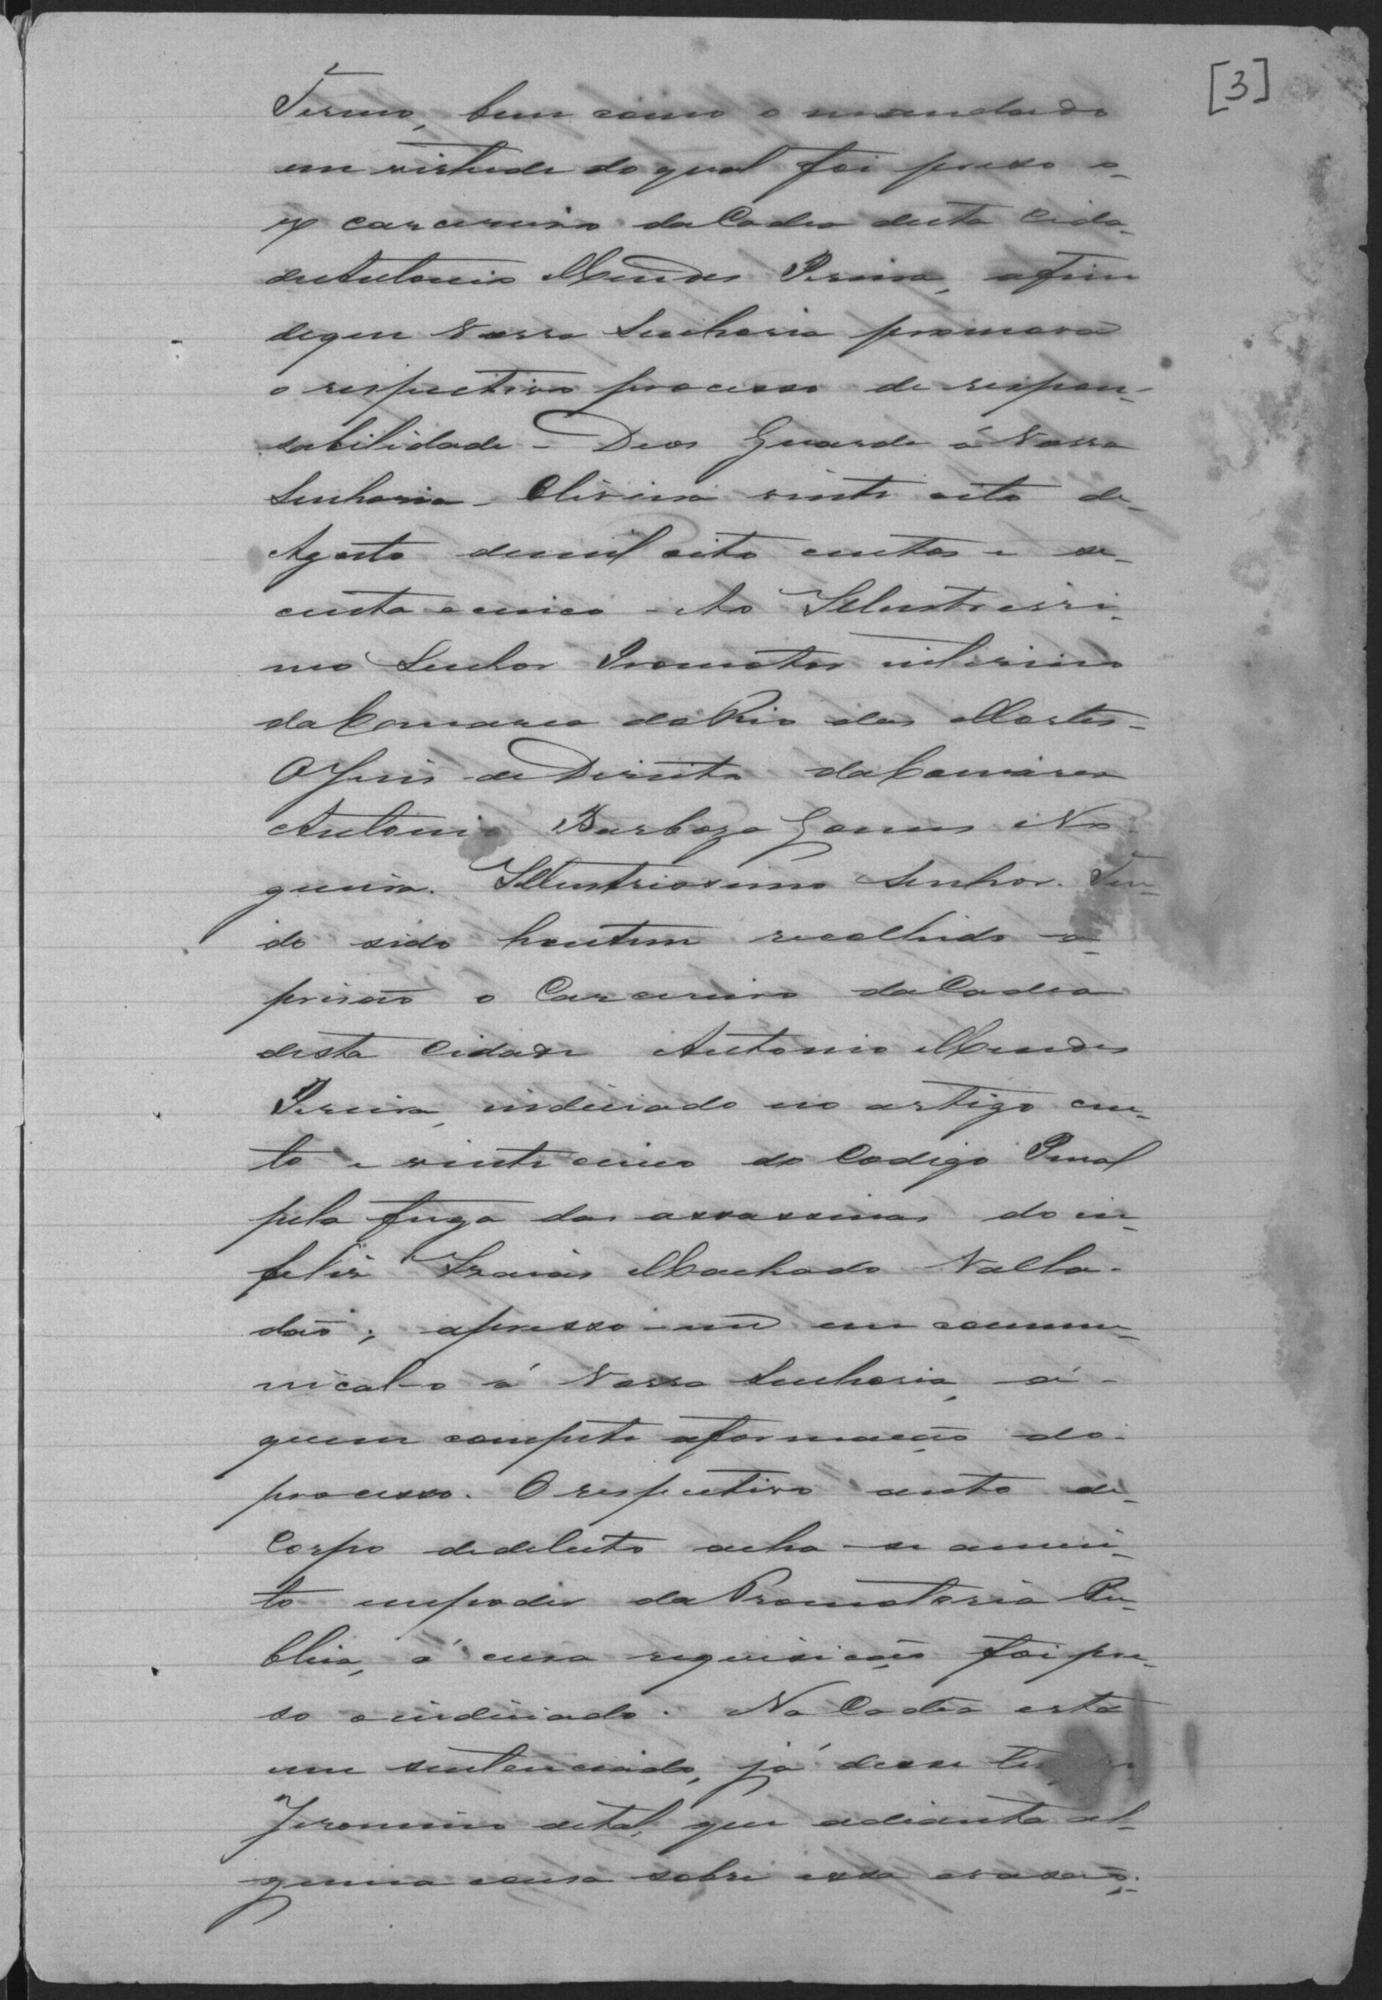 [3]
Termo, bem como o mandado
em virtude do qual foi preso o
ex carcereiro da Cadea desta Cida-
de Antonio Mendes Pereira, afim
de que Vossa Senhoria promova
o respectivo processo de respon-
sabilidade - Deos Guarde á Vossa
Senhoria - Oliveira vinte oito de
Agosto de mil oito centos e se-
centa e cinco - Ao Illustrissi-
mo Senhor Promotor interino
da Comarca do Rio das Mortes -
O Juis de Direito da Comarca
Antonio Barboza Gomes No-
gueira. Illustrissimo Senhor. Ten-
do sido hontem recolhido a
prisão o Carcereiro da Cadea
desta Cidade Antonio Mendes
Pereira, indiciado no artigo cen-
to e vinte cinco do Codigo Penal
pela fuga dos assassinos do in-
felis Isaias Machado Valla-
dão; apresso-me em commu-
nical-o á Vossa Senhoria, á
quem compete a formação do
processo. O respectivo auto de
Corpo de delicto acha-se
em poder da Promotoria Pu-
blica, á cuja requisição foi pre-
so o indiciado. Na Cadea está
um sentenciado, já desse
Jeronimo de tal, que adianta al-
guma cousa sobre essa evasão;